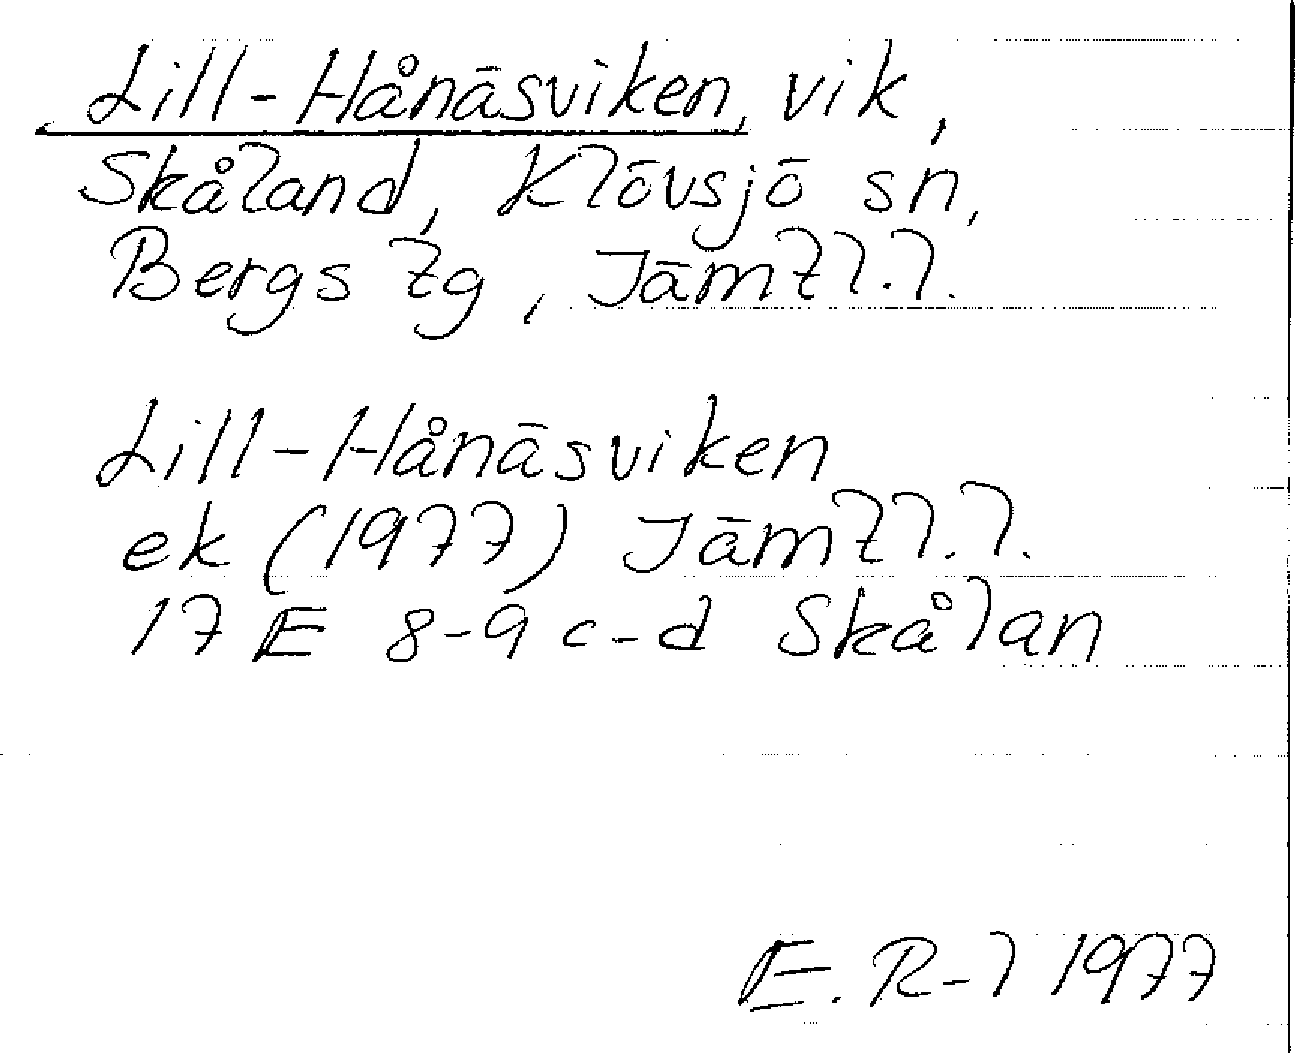 Lill-Hånäsviken, vik,
Skåland, Klövsjö sn,
Bergs tg, Jämtl.l.
Lill-Hånäsviken
ek (1977) Jämtl.l.
17 E 8-9 c-d Skålan
E. R-l 1977